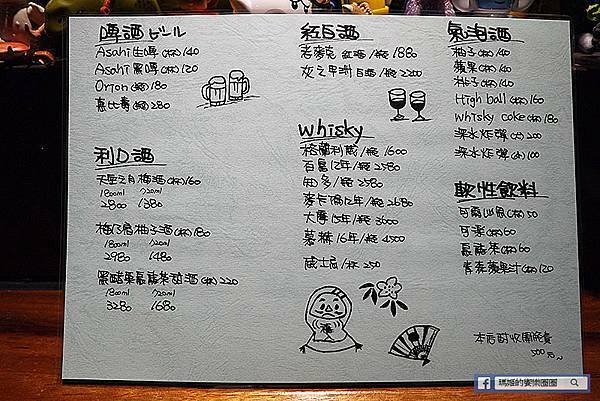 啤酒 ビール
Asahi 生啤(杯)140
Asahi 黑啤(杯)120
Orion(罐)180
惠比壽(罐)280
利口酒
天空之月梅酒(杯)160
1800ml 720ml
2800 1380
梅乃宿柚子酒(杯)180
1800ml 720ml
2980 1480
黑醋栗烏龍茶甜酒(杯)220
1800ml 720ml
3280 1680
紅白酒
老麥克 紅酒/瓶 1880
白酒/瓶 2200
whisky
格蘭利威/瓶 1600
百富12年/瓶 2580
知多/瓶 2580
麥卡倫12年/瓶 2680
大摩15年/瓶 3600
慕赫16年/瓶 4500
威士忌/杯 250
氣泡酒
柚子(杯)140
蘋果(杯)140
桃子(杯)140
High ball(杯)160
whisky coke(杯)180
深水炸彈(大)200
深水炸彈(小)100
軟性飲料
可爾必思(杯)50
可樂(杯)60
烏龍茶(杯)60
青森蘋果汁(杯)120
福
本店酌收開瓶費
500元~
瑪姬的饗樂圈圈